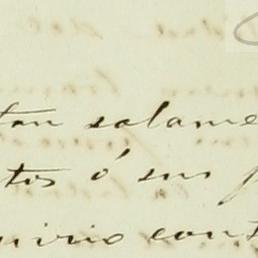 tan salame
tos ó sus p
uirio cont